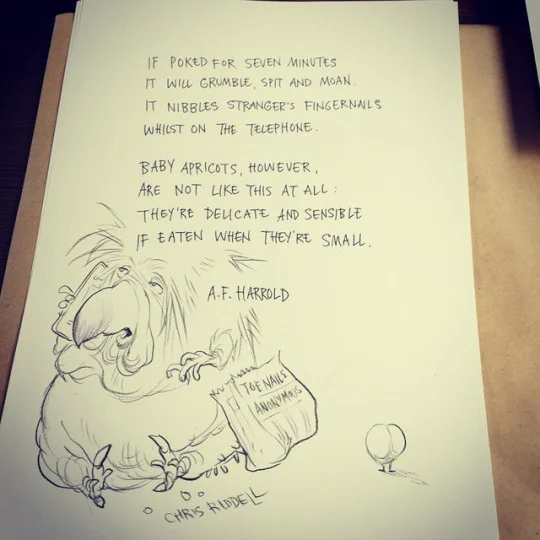 IF POKED FOR SEVEN MINUTES
IT WILL GRUMBLE, SPIT AND MOAN.
IT NIBBLES STRANGER'S FINGERNAILS
WHILST ON THE TELEPHONE.
BABY APRICOTS, HOWEVER,
ARE NOT LIKE THIS AT ALL:
THEY'RE DELICATE AND SENSIBLE
IF EATEN WHEN THEY'RE SMALL.
A.F. HARROLD
TOENAILS
ANONYMOUS
CHRIS RIDDELL